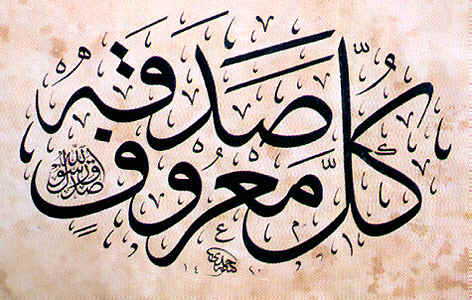 كُلُّ مَعْرُوفٍ صَدَقَه
صدق رسول الله
١٤٢٠